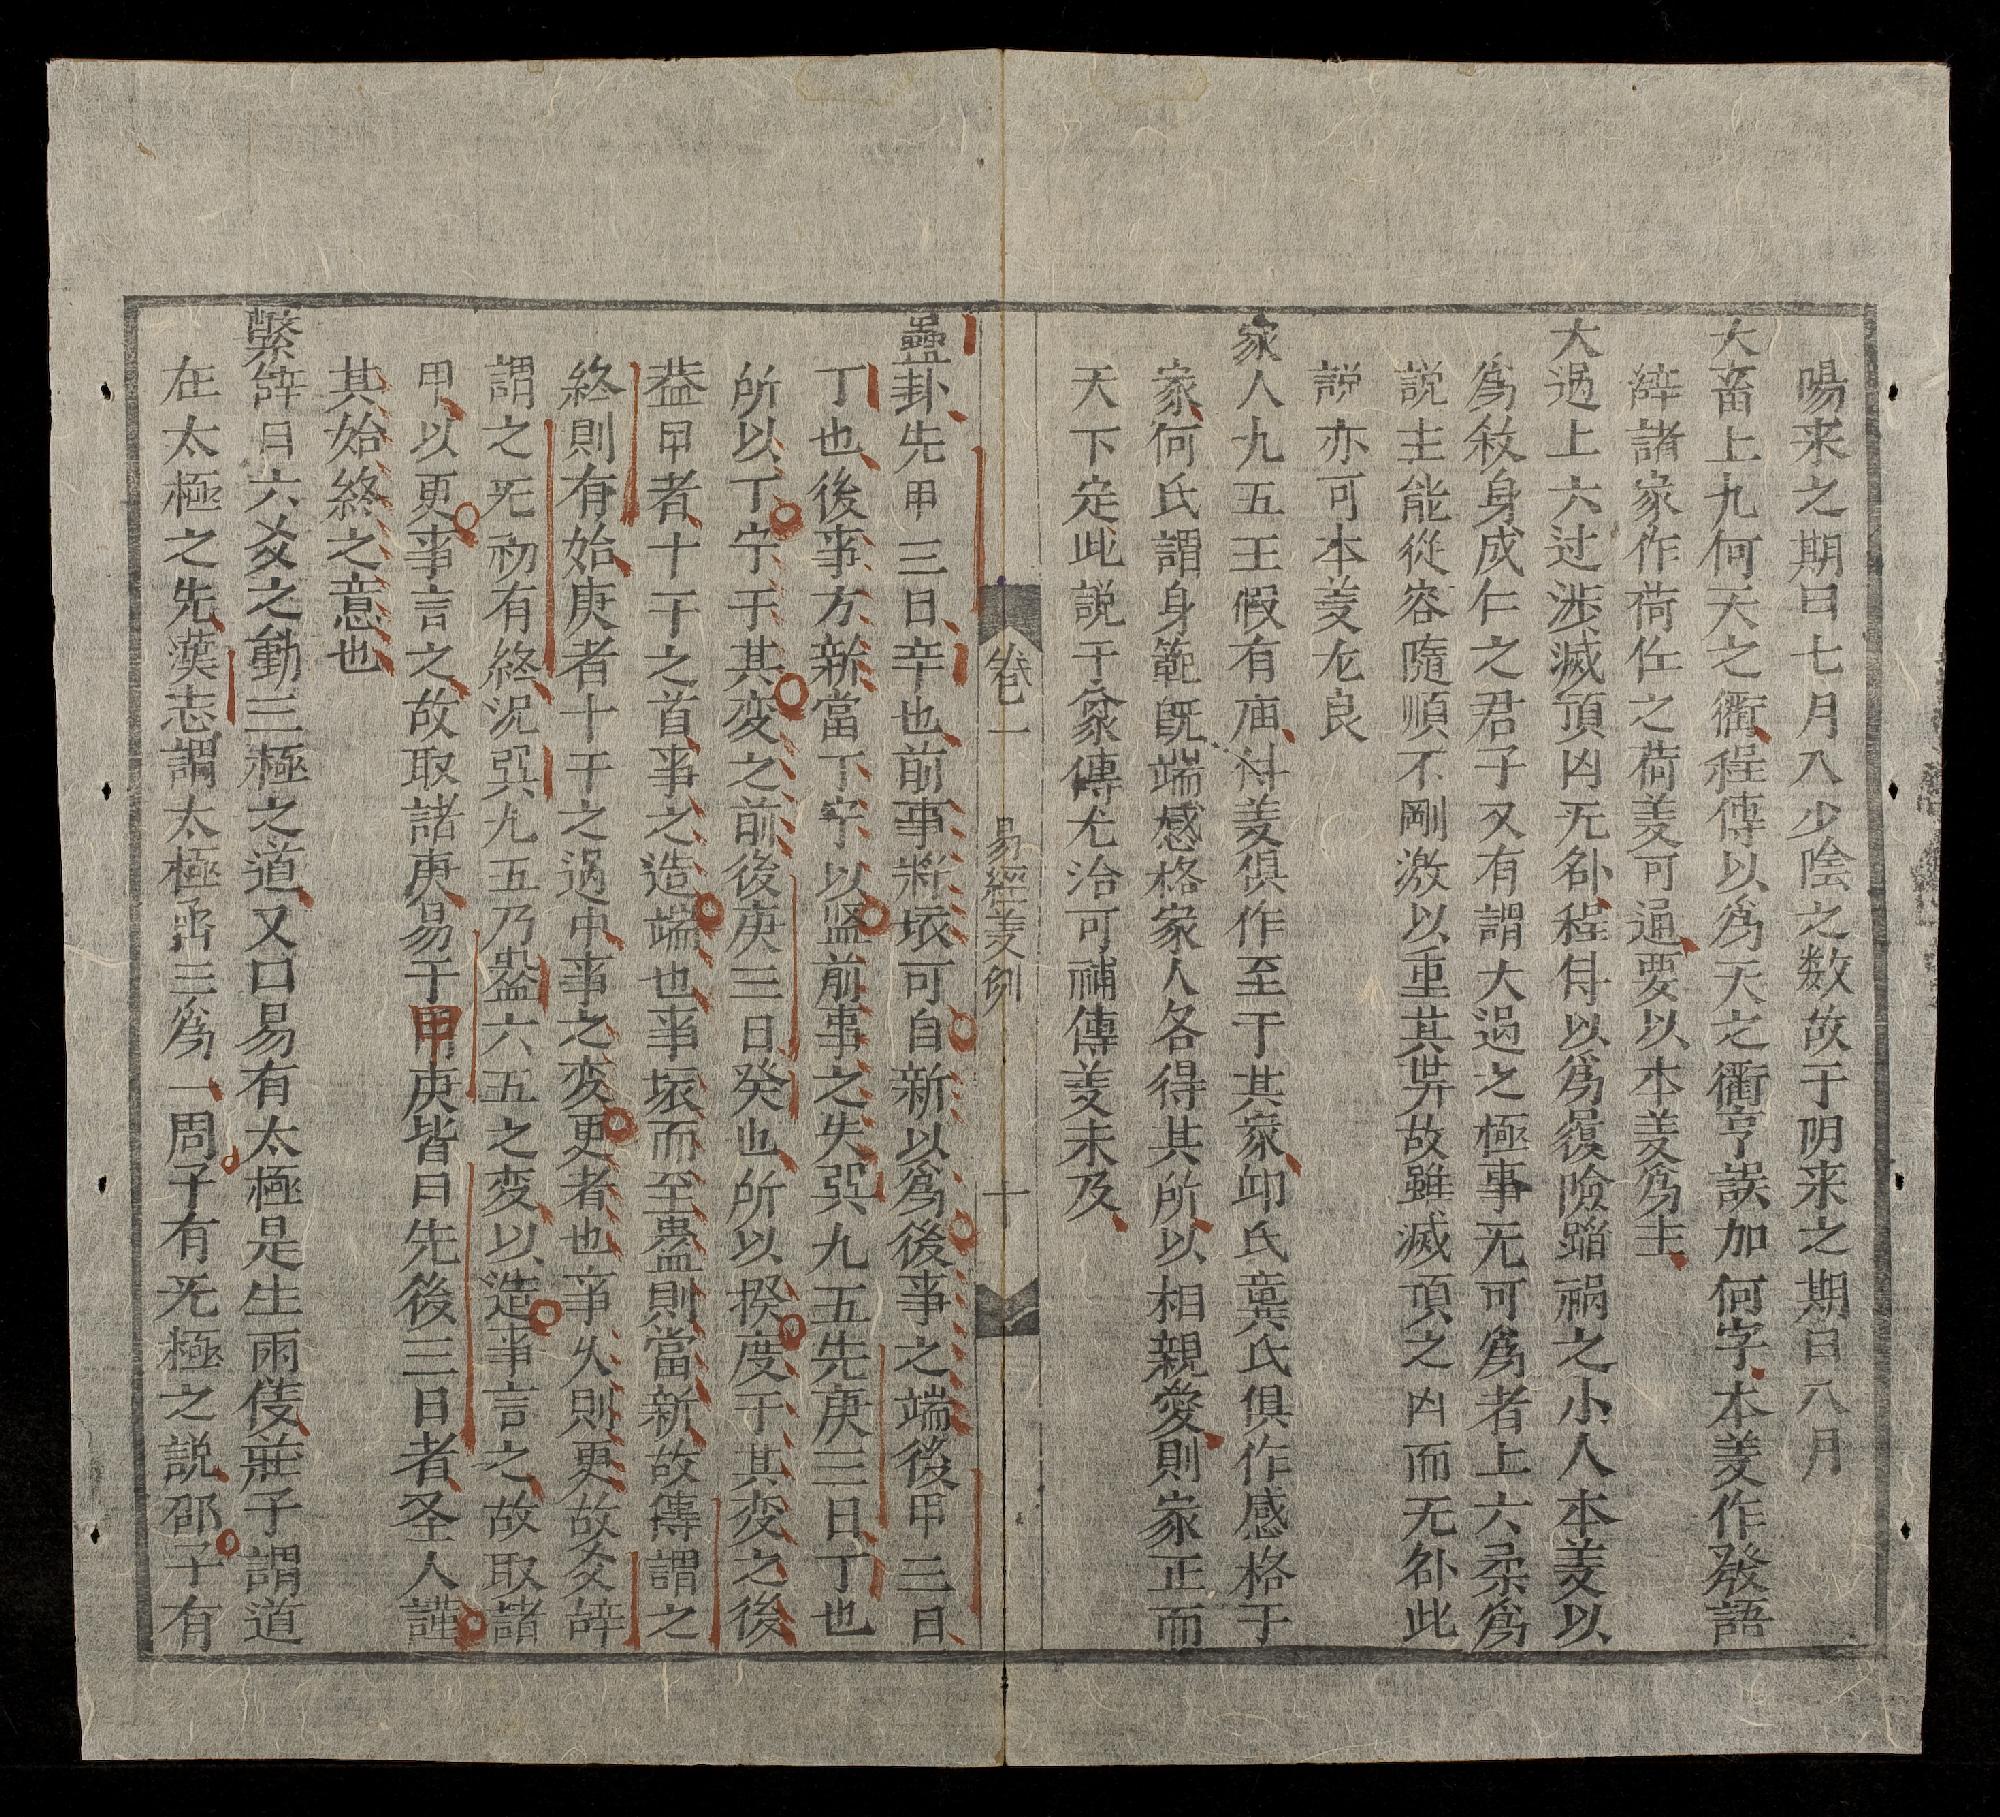 陽来之期曰七月八少陰之数故于阴来之期曰八月
大畜上九何天之衢程傳以爲天之衢亨誤加何字本義作發語
辝諸家作荷任之荷義可通要以本義爲主
大過上六过涉滅頂凶无咎程傳以爲履險蹈禍之小人本義以
爲殺身成仁之君子又有謂大過之極事无可爲者上六柔爲
説主能從容隨順不剛激以重其异故雖滅頂之凶而无咎此
説亦可本義尤良
家人九五王假有庙傳義俱作至于其家邱氏龔氏俱作感格于
家何氏謂身範既端感格家人各得其所以相親愛則家正而
天下定此説于彖傳尤洽可補傳義未及
卷一 易經義例 十
蠱卦先甲三日辛也前事将壊可自新以爲後事之端後甲三日
丁也後事方新當丁宁以监前事之失巽九五先庚三日丁也
所以丁宁于其変之前後庚三日癸也所以揆度于其変之後
葢甲者十干之首事之造端也事壊而至蠱則當新故傳謂之
終則有始庚者十干之过中事之変更者也亊久則更故爻辝
謂之旡初有終况巽九五乃蠱六五之変以造事言之故取諸
甲以更事言之故取諸庚易于甲庚皆曰先後三日者圣人謹
其始終之意也
繫辝曰六爻之動三極之道又曰易有太極是生兩儀莊子謂道
在太極之先漢志謂太極凾三爲一周子有旡極之説邵子有